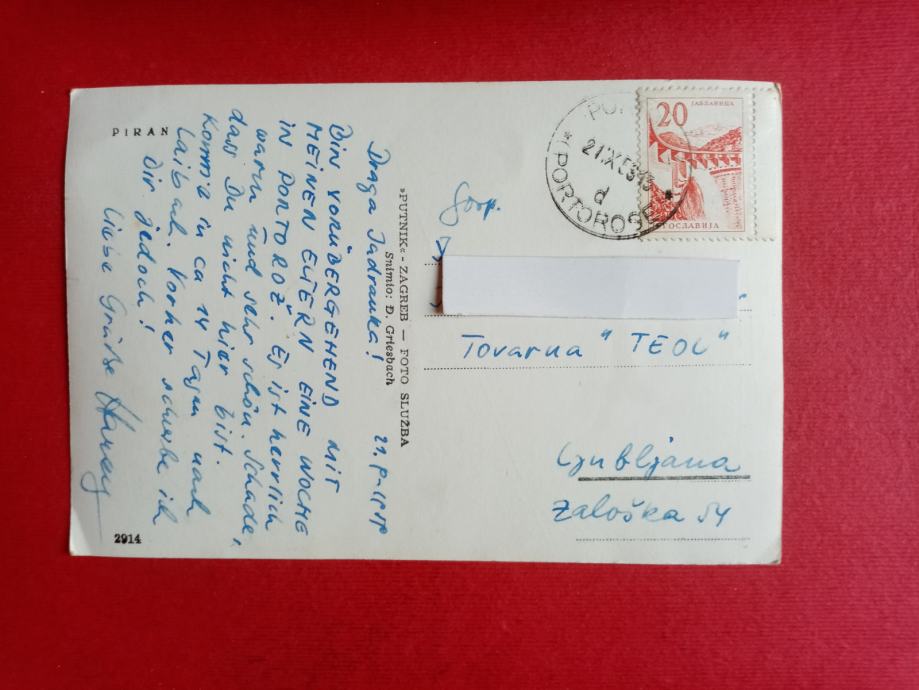 PIRAN
Draga Jadranka!
BIN VORÜBERGEHEND MIT
MEINEN ELTERN EINE WOCHE
IN PORTOROŽ. Es ist herrlich
warm und sehr schön. Schade,
dass Du nicht hier bist.
Komme in ca 14 Tagen nach
Laibach. Vorher schreibe ich
Dir jedoch!
Liebe Grüße
2914
»PUTNIK« - ZAGREB — FOTO SLUŽBA
Snimio: Đ. Griesbach
20
JABLANICA
JUGOSLAVIJA
PORTOROSE
d
Gosp.
Tovarna "TEOL"
Ljubljana
Zaloška 54